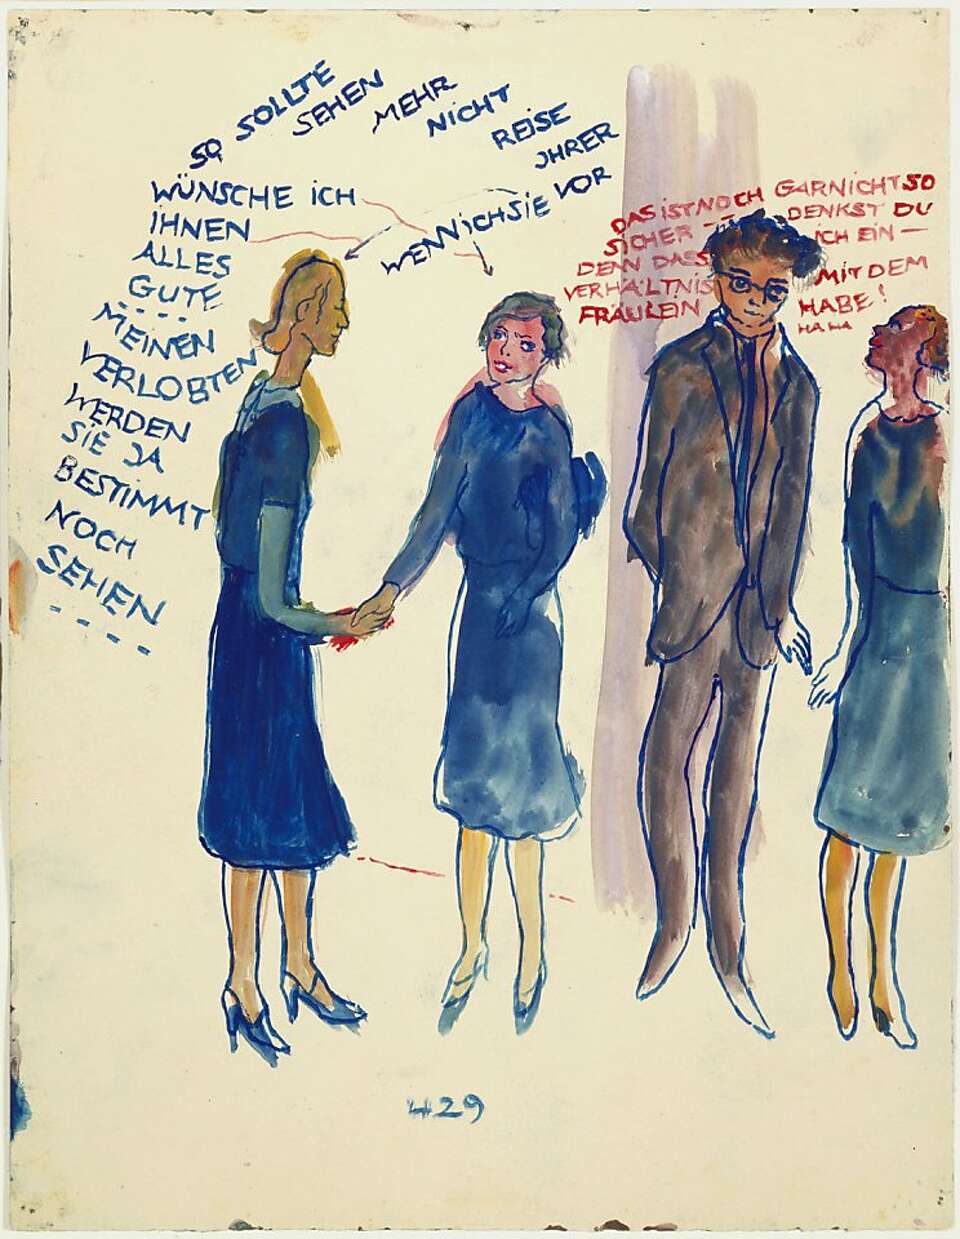 WENN ICH SIE VOR
JHRER
REISE
NICHT
MEHR
SEHEN
SOLLTE
SO
WÜNSCHE ICH
IHNEN
ALLES
GUTE
- - - -
MEINEN
VERLOBTEN
WERDEN
SIE JA
BESTIMMT
NOCH
SEHEN
- - - -
DAS IST NOCH GARNICHT SO
SICHER — DENKST DU
DENN DASS ICH EIN —
VERHÄLTNIS MIT DEM
FRÄULEIN HABE!
HA HA
429